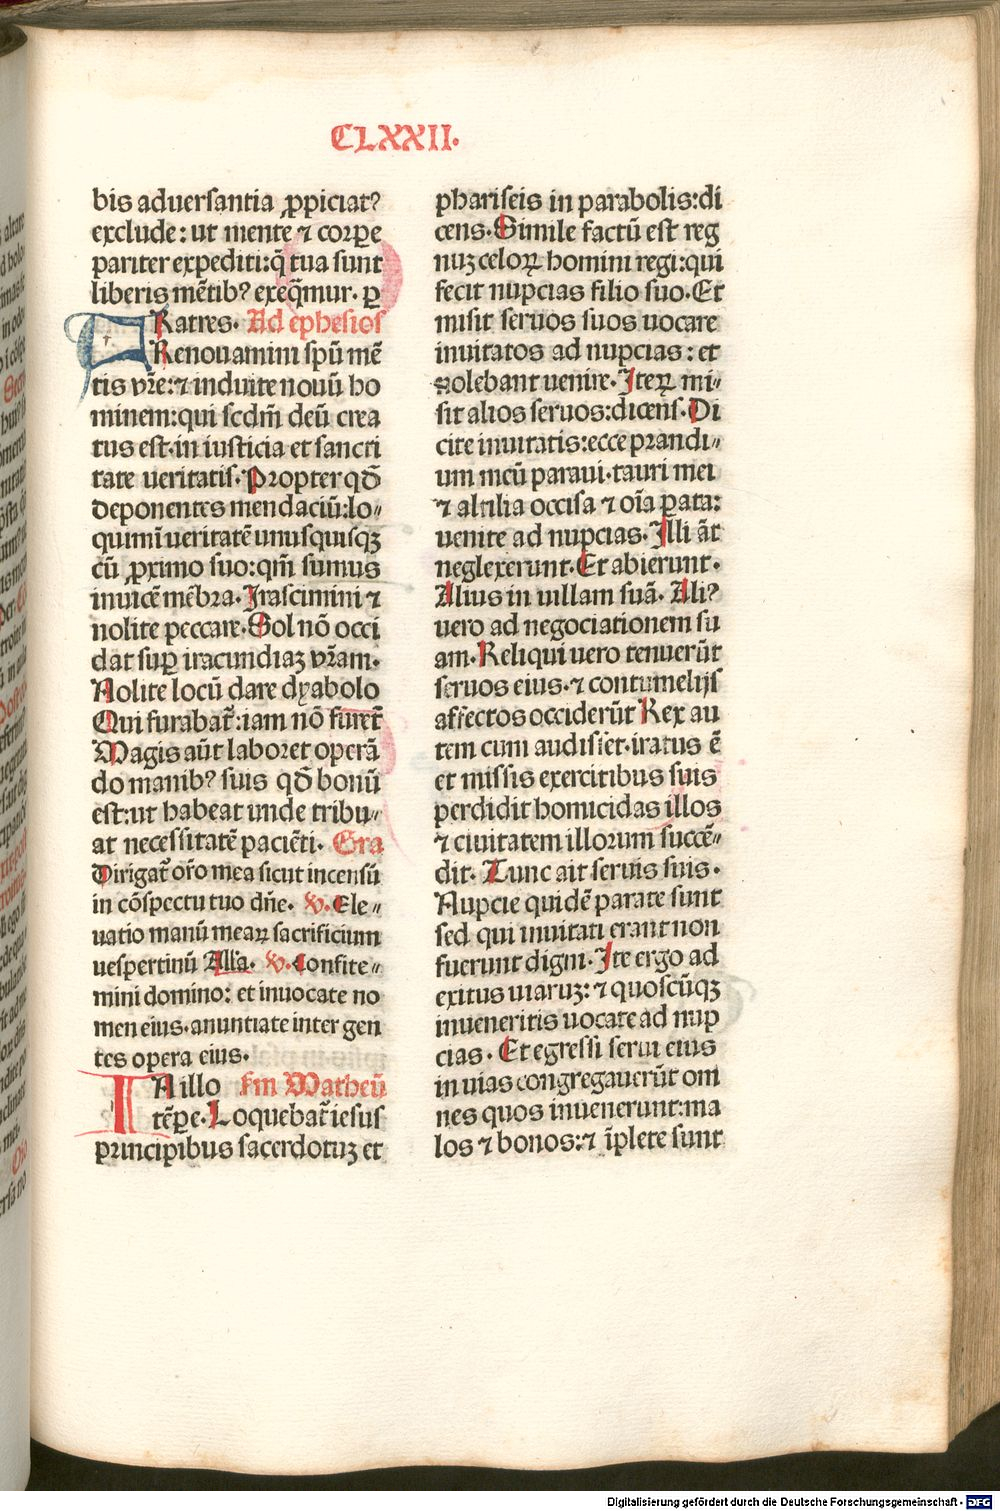 CLXXII.
bis aduersantia ꝓpiciatꝰ
exclude: ut mente ⁊ corꝑe
pariter expediti: q̃ tua sunt
liberis mẽtibꝰ exeq̃mur. ꝑ
FRatres. Ad ephesios
Renouamini spũ mẽ
tis vr̃e: ⁊ induite nouũ ho
minem: qui scdm̃ deũ crea
tus est. in iusticia et sancti
tate ueritatis. Propter qđ
deponentes mendaciũ: lo〃
quimĩ ueritatẽ unusquisqꝫ
cũ ꝓximo suo: qm̃ sumus
inuicẽ mẽbra. Irascimini ⁊
nolite peccare. Sol nõ occi
dat suꝑ iracundiaꝫ vr̃am.
Nolite locũ dare dyabolo
Qui furabat̃: iam nõ furet̃
Magis aũt laboret operã
do manibꝰ suis qđ bonũ
est: ut habeat unde tribu〃
at necessitatẽ paciẽti. Gra
Dirigat̃ or̃o mea sicut incensũ
in cõspectu tuo dñe. v. Ele〃
uatio manũ mearꝝ sacrificium
uespertinũ Alla. v. Confite〃
mini domino: et inuocate no
men eius. anuntiate inter gen
tes opera eius.
IN illo sm̃ Matheũ
tẽꝑe. Loquebat̃ iesus
principibus sacerdotuꝫ et
phariseis in parabolis: di
cens. Simile factũ est reg
nuꝫ celorꝝ homini regi: qui
fecit nupcias filio suo. Et
misit seruos suos uocare
inuitatos ad nupcias: et
nolebant uenire. Iterꝝ mi〃
sit alios seruos: dicens. Di
cite inuitatis: ecce prandi〃
um meũ paraui. tauri mei
⁊ altilia occisa ⁊ oĩa ꝑata:
uenite ad nupcias. Illi aũt
neglexerunt. Et abierunt.
Alius in uillam suã. Aliꝰ
uero ad negociationem su
am. Reliqui uero tenuerũt
seruos eius. ⁊ contumelijs
affectos occiderũt Rex au
tem cum audisset. iratus ẽ
et missis exercitibus suis
perdidit homicidas illos
⁊ ciuitatem illorum succẽ〃
dit. Tunc ait seruis suis.
Nupcie quidẽ parate sunt
sed qui inuitati erant non
fuerunt digni. Ite ergo ad
exitus uiaruꝫ: ⁊ quoscũqꝫ
inueneritis uocate ad nup
cias. Et egressi serui eius
in uias congregauerũt om
nes quos inuenerunt: ma
los ⁊ bonos: ⁊ ĩplete sunt
Digitalisierung gefördert durch die Deutsche Forschungsgemeinschaft - DFG